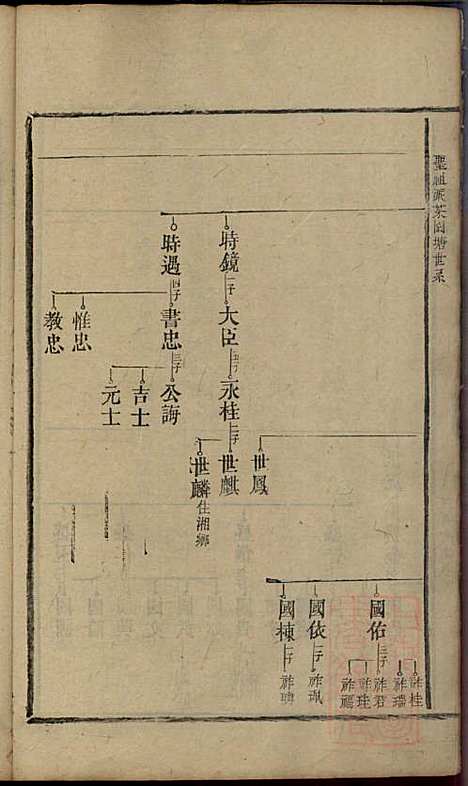 聖祖派茶園塘世系
時鏡
一子
大臣
五子
永桂
三子
世鳳
世麒
世麟
住湘鄉
時遇
四子
書忠
三子
公誨
吉士
元士
惟忠
教忠
國佑
三子
祚桂
祚瑞
祚君
祚珪
國依
一子
祚珮
國棟
一子